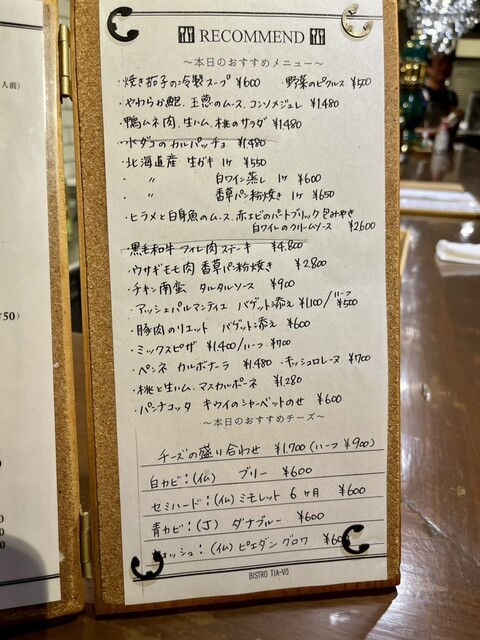 RECOMMEND
〜本日のおすすめメニュー〜
・焼き茄子の冷製スープ ¥600 ・野菜のピクルス ¥500
・やわらか鮑、玉葱のムース、コンソメジュレ ¥1.480
・鴨ムネ肉、生ハム、桃のサラダ ¥1.480
・水ダコのカルパッチョ ¥1.480
・北海道産 生ガキ 1ヶ ¥550
〃 白ワイン蒸し 1ヶ ¥600
〃 香草パン粉焼き 1ヶ ¥650
・ヒラメと白身魚のムース、赤エビのパートブリック包みやき
白ワインのクリームソース ¥2600
・黒毛和牛 フィレ肉ステーキ ¥4.800
・ウサギモモ肉 香草パン粉焼き ¥2.800
・チキン南蛮 タルタルソース ¥900
・アッシェパルマンティエ バゲット添え ¥1.100/ハーフ ¥500
・豚肉のリエット バゲット添え ¥600
・ミックスピザ ¥1.400/ハーフ ¥700
・ペンネ カルボナーラ ¥1.480 ・キッシュロレーヌ ¥700
・桃と生ハム、マスカルポーネ ¥1.280
・パンナコッタ キウイのシャーベットのせ ¥600
〜本日のおすすめチーズ〜
チーズの盛り合わせ ¥1.700 (ハーフ ¥900)
白カビ:(仏) ブリー ¥600
セミハード:(仏) ミモレット 6ヶ月 ¥600
青カビ:(J) ダナブルー ¥600
ォッシュ:(仏) ピエダングロワ ¥60
BISTRO TIA-VO
人前)
¥50)